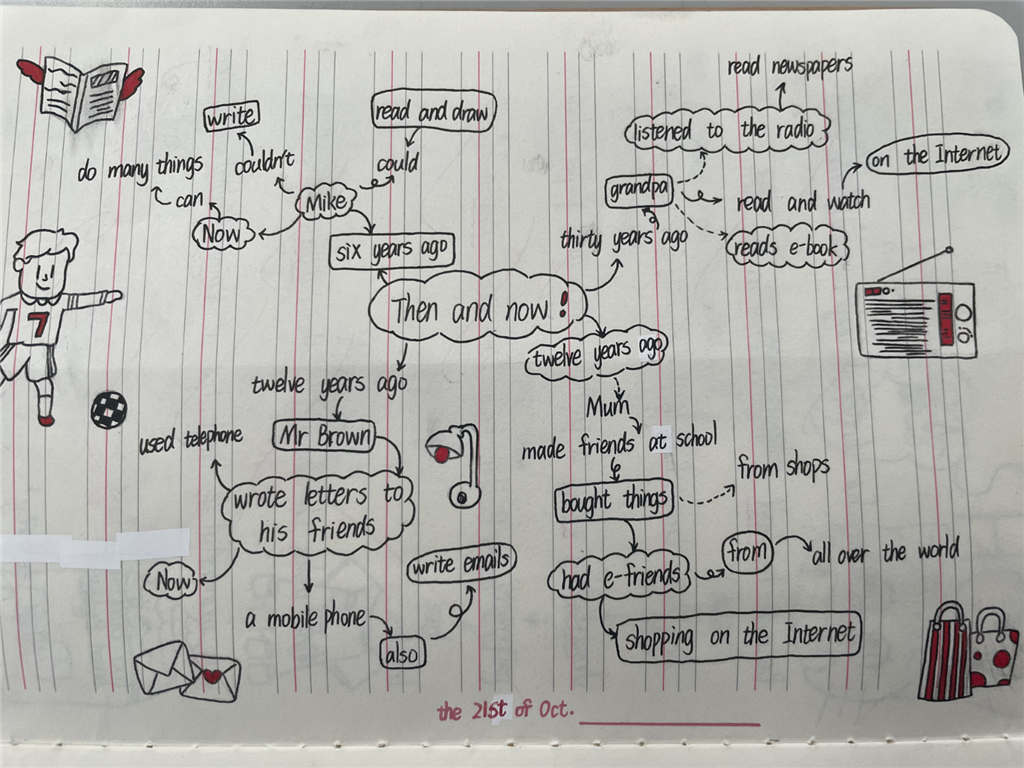 read newspapers
write
read and draw
listened to the radio
do many things
couldn't
could
on the Internet
can
Mike
grandpa
read and watch
Now
six years ago
thirty years ago
reads e-book
Then and now!
7
twelve years ago
twelve years ago
Mum
used telephone
Mr Brown
made friends at school
from shops
wrote letters to
his friends
bought things
write emails
from
all over the world
Now
had e-friends
a mobile phone
also
shopping on the Internet
the 21st of Oct.